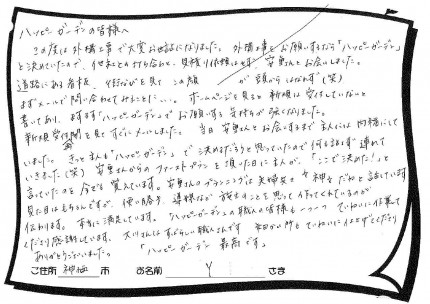 ハッピーガーデンの皆様へ
この度は外構工事で大変お世話になりました。外構工事をお願いするなら「ハッピーガーデン」
と決めていたので、他社との打ち合わせ、見積り依頼はせず、安里さんとお会いしました。
道路にある看板、街なびを見て この顔 が 頭から はなれず(笑)
まずメールで問い合わせてみることに…。ホームページを見ると新規は受付していないと
書いてあり、ますます「ハッピーガーデン」でお願いする気持ちが強くなりました。
新規受付を見てすぐにメールしました。当日 安里さんとお会いするまで主人には内緒にして
いました。きっと主人も「ハッピーガーデン」で決めるだろうと思っていたので何も話さず連れて
いきました(笑) 安里さんからのファーストプランを頂いた日に主人が、「ここで決めた!」と
言っていたのを今でも覚えています。安里さんのプランニングは夫婦笑 "神" だねと話しています
見た目はもちろんですが、使い勝手、導線など 施主のことを思って作ってくれているのが
伝わります。本当に満足しています。「ハッピーガーデン」の職人の皆様も一つ一つていねいに仕事して
くださり感謝しています。大川さんはすばらしい職人さんです 細かい所もていねいに仕上げてくださり
ありがとうございました。「ハッピーガーデン 最高です」
ご住所 神栖 市 お名前 Y さま